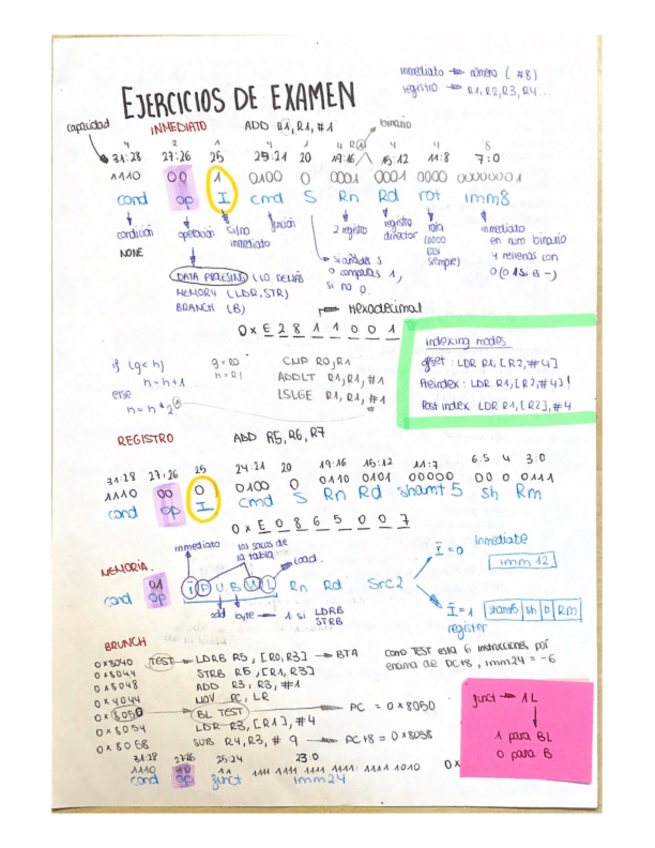 inmediato → número ( #8)
registro → R1, R2, R3, R4...
EJERCICIOS DE EXAMEN
capacidad
INMEDIATO ADD R1, R1, #1
binario
4 2 1 4 1 4 4 4 8
31:28 27:26 25 20 19:16 15:12 11:8 7:0
1110 00 1 0100 0 0001 0001 0000 00000001
cond op I cmd S Rn Rd rot imm8
condición operación si/no función 2 registro registro rota inmediato
NONE inmediato director (0000 en num binario
casi y rellenas con
siempre) 0 (o 1 si es -)
si añades S
o comparas 1,
si no 0.
DATA PROCESING (LO DEMÁS)
MEMORY (LDR, STR)
BRANCH (B)
Hexadecimal
0x E 2 8 1 1 0 0 1
Indexing modes
offset : LDR R1, [R2, #4]
Preindex : LDR R1, [R2, #4] !
Post index LDR R1, [R2], #4
if (g<h) g = R0 CMP R0, R1
h = h+1 h = R1 ADDLT R1, R1, #1
else LSLGE R1, R1, #1
h = h * 2
REGISTRO ADD R5, R6, R7
31:28 27:26 25 24:21 20 19:16 15:12 11:7 6:5 4 3:0
1110 00 0 0100 0 0110 0101 00000 00 0 0111
cond op I cmd S Rn Rd shamt5 sh Rm
0x E 0 8 6 5 0 0 7
inmediato los sacas de
la tabla load.
MEMORIA
01
cond op I P U B W L Rn Rd Src2
add byte → 1 si LDRB
STRB
I = 0 Inmediate
imm 12
I = 1 shamt5 sh 0 Rm
register
BRUNCH
0x8040 TEST → LDRB R5, [R0, R3] → BTA
0x8044 STRB R5, [R1, R3]
0x8048 ADD R3, R3, #1
0x4044 MOV PC, LR
0x8050 BL TEST → PC = 0x8050
0x8054 LDR R3, [R1], #4
0x8058 SUB R4, R3, # 9 → PC+8 = 0x8058
como TEST esta 6 instrucciones por
encima de PC+8, imm24 = -6
funct → 1L
1 para BL
0 para B
31:28 27:26 25:24 23:0
1110 10 11 1111 1111 1111 1111 1111 1010 0x
cond op funct imm24